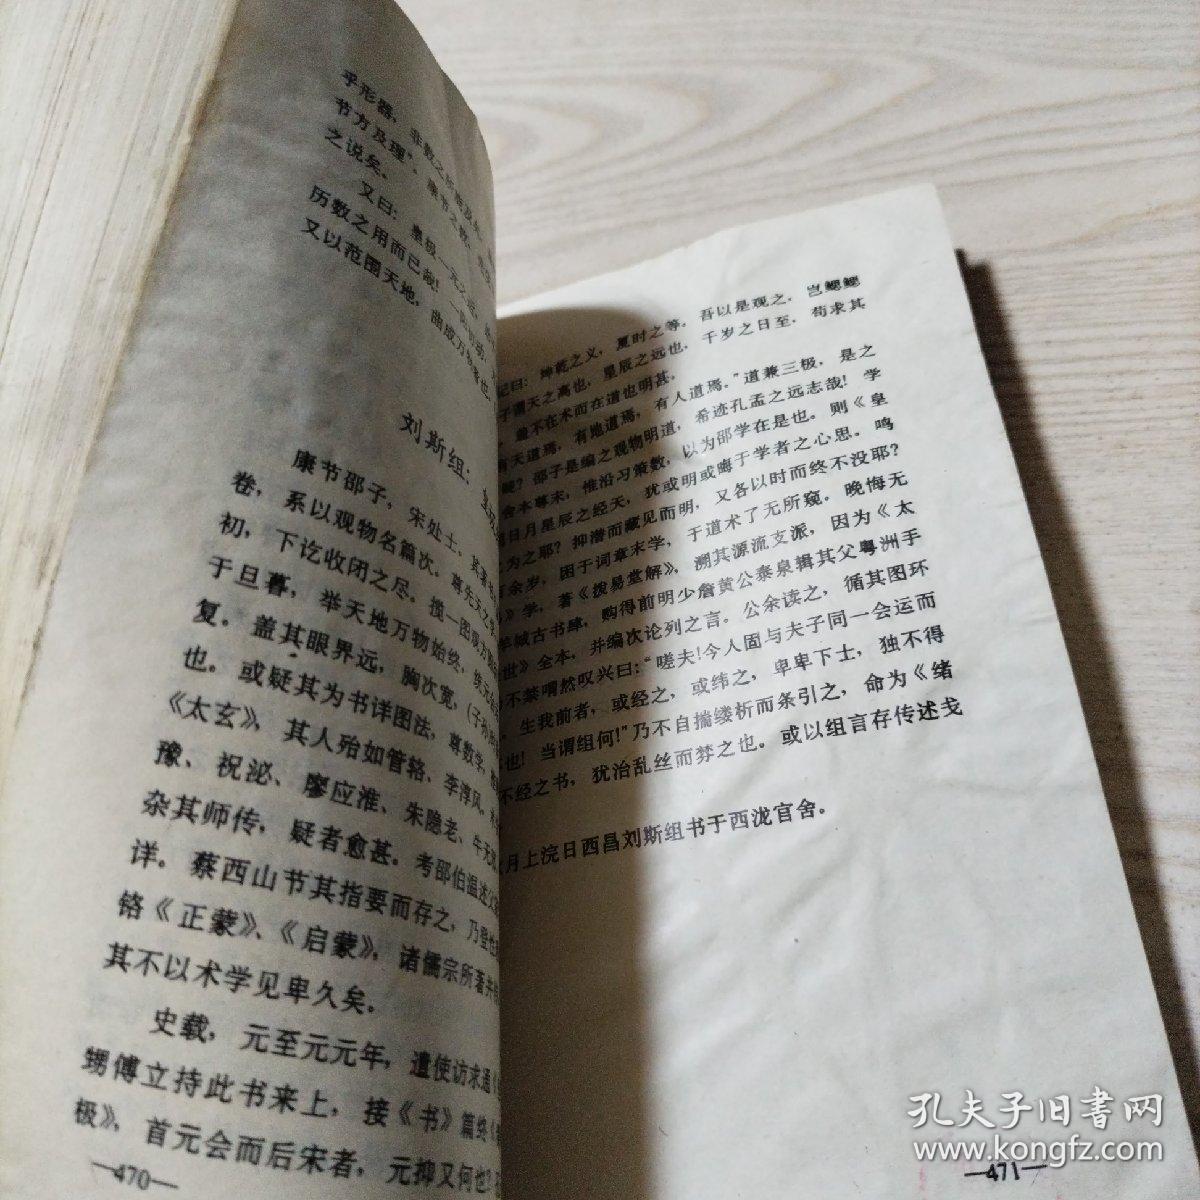 乎形器，非数之所能及
节方及理”。康节之
之说矣。
又曰：皇极一元
历数之用而已哉！一
又以范围天地，曲成万
刘斯组：
康节邵子，宋处士，其
卷，系以观物名篇次。尊先天之学
初，下讫收闭之尽。揽一图
于旦暮，举天地万物始终，
复。盖其眼界远，胸次宽，（子
也。或疑其为书详图法，尊数学，
《太玄》，其人殆如管辂、李淳风、
豫、祝泌、廖应淮、朱隐老、牛无
杂其师传，疑者愈甚。考邵伯温述父
详。蔡西山节其指要而存之，乃登性
铬《正蒙》、《启蒙》，诸儒宗所著并
其不以术学见卑久矣。
史载，元至元元年，遣使访求通
甥傅立持此书来上，接《书》篇终
极》，首元会而后宋者，元抑又何也？
—470—
记曰：坤乾之义，夏时之等，吾以是观之，岂鳃鳃
子谓天之高也，星辰之远也，千岁之日至，苟求其
，盖不在术而在道也明甚，
有天道焉，有地道焉，有人道焉。”道兼三极，是之
疑？邵子是编之观物明道，希迹孔孟之远志哉！学
舍本尊末，惟沿习策数，以为邵学在是也。则《皇
日月星辰之经天，犹或明或晦于学者之心思。鸣
为之耶？抑潜而藏见而明，又各以时而终不没耶？
余岁，困于词章末学，于道术了无所窥。晚悔无
》学，著《拨易堂解》，溯其源流支派，因为《太
羊城古书肆，购得前明少詹黄公泰泉辑其父粤洲手
世》全本，并编次论列之言。公余读之，循其图环
不禁喟然叹兴曰：“嗟夫！今人固与夫子同一会运而
。生我前者，或经之，或纬之，卑卑下士，独不得
也！当谓组何！”乃不自揣缕析而条引之，命为《绪
不经之书，犹治乱丝而棼之也。或以组言存传述戋
月上浣日西昌刘斯组书于西泷官舍。
—471—
孔夫子旧书网
www.kongfz.com